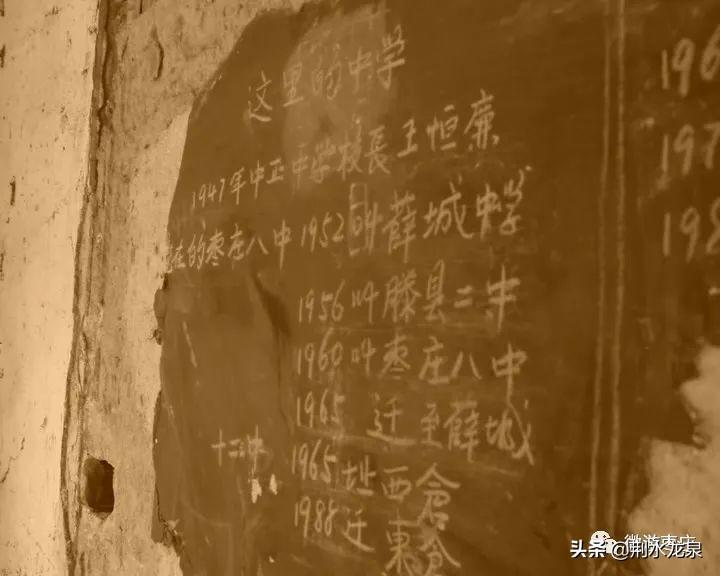 这里的中学
1947年中正中学校長王恒廉
在的枣庄八中 1952叫薛城中学
1956叫滕县二中
1960叫枣庄八中
1965 迁至薛城
十二中 1965址西倉
1988迁東倉
196
197
198
微游枣庄
头条@荆水龙泉